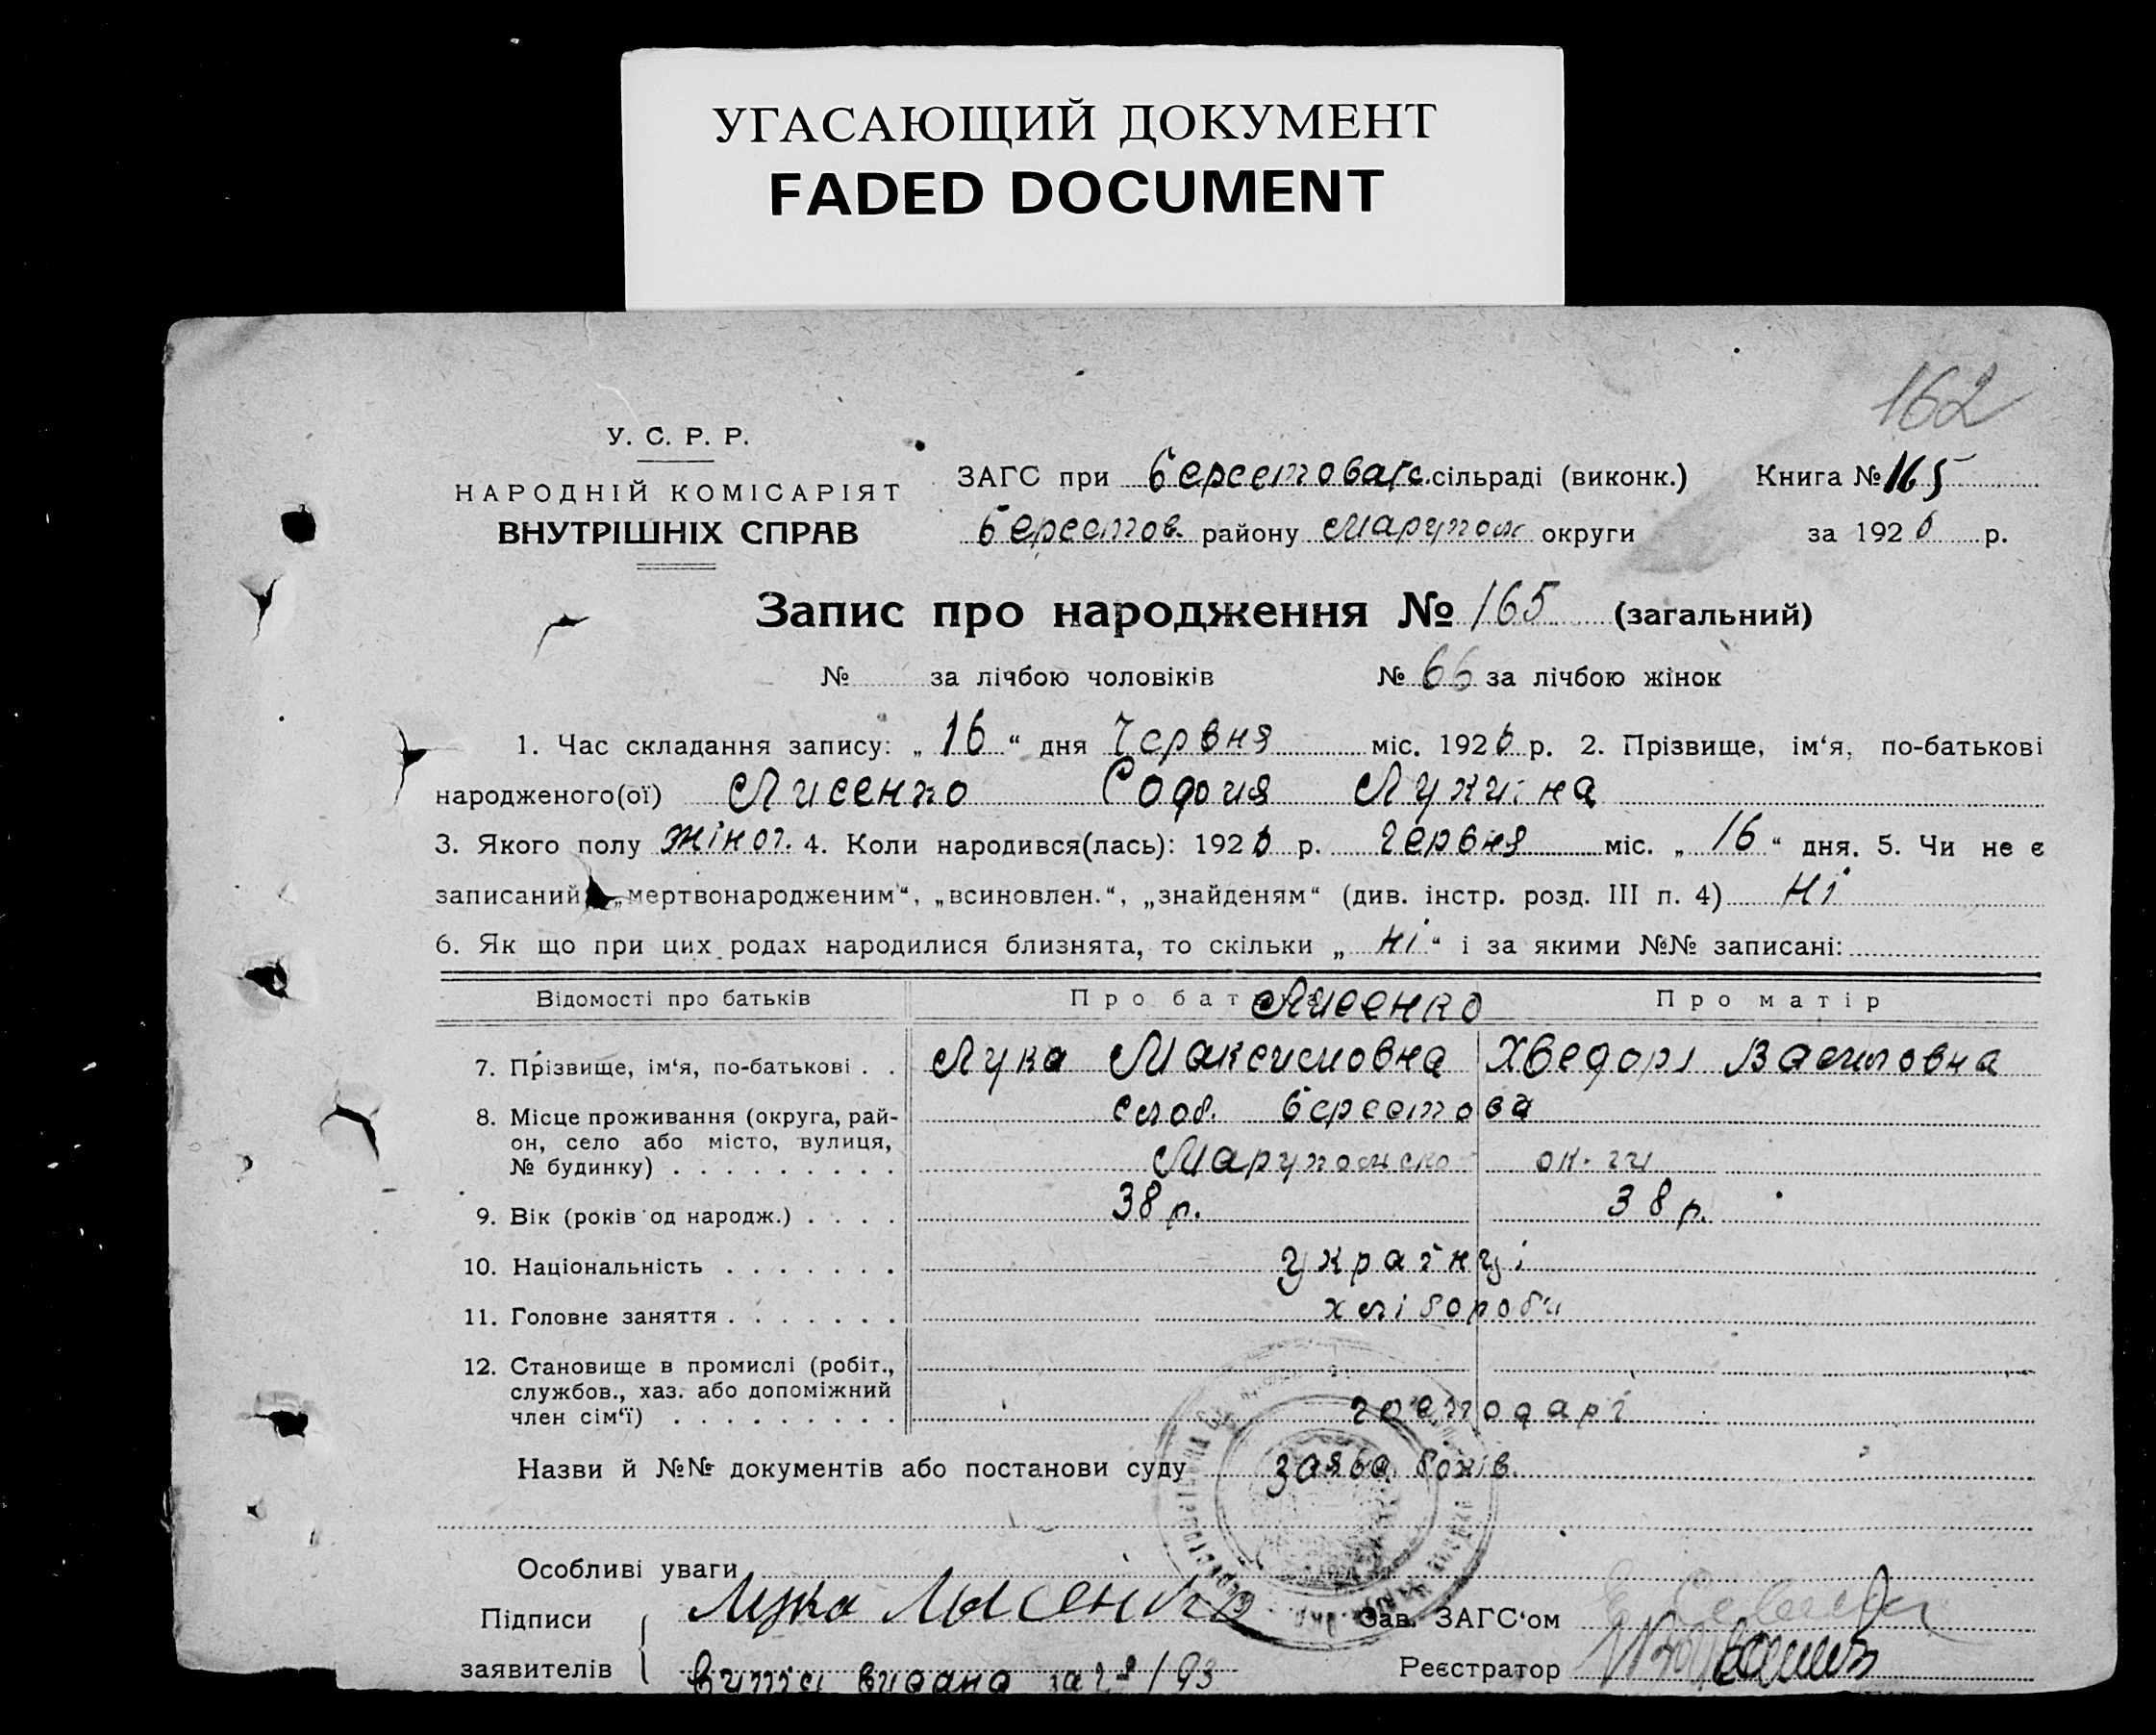 УГАСАЮЩИЙ ДОКУМЕНТ
FADED DOCUMENT
162
У. С. Р. Р.
НАРОДНІЙ КОМІСАРІЯТ
ВНУТРІШНІХ СПРАВ
ЗАГС при Берестоваг. сільраді (виконк.) Книга № 165
Берестов. району Марупол округи за 1926 р.
Запис про народження № 165 (загальний)
№ за лічбою чоловіків № 66 за лічбою жінок
1. Час складання запису: „ 16 “ дня Червня міс. 1926 р. 2. Прізвище, ім‘я, по-батькові
народженого(ої) Лисенко София Лукична
3. Якого полу жіноч. 4. Коли народився(лась): 1926 р. червня міс. „ 16 “ дня. 5. Чи не є
записаний „мертвонародженим“, „всиновлен.“, „знайденям“ (див. інстр. розд. III п. 4) Ні
6. Як що при цих родах народилися близнята, то скільки „ Ні “ і за якими №№ записані:
Відомості про батьків Про бат Лисенко Про матір
7. Прізвище, ім‘я, по-батькові . . Лука Максимовна Хведора Василовна
8. Місце проживання (округа, рай-
он, село або місто, вулиця,
№ будинку) . . . . . . . . .
слоб. Берестова
Марупольско ок-ги
9. Вік (років од народж.) . . . . 38 р. 38 р.
10. Національність . . . . . . . українці
11. Головне заняття . . . . . . . хлібороби
12. Становище в промислі (робіт.,
службов., хаз. або допоміжний
член сім‘ї) . . . . . . . . . господарі
Назви й №№ документів або постанови суду заява боків
Особливі уваги
Підписи Лука Лысенко Зав. ЗАГС‘ом
заявителів випис видана за Реєстратор